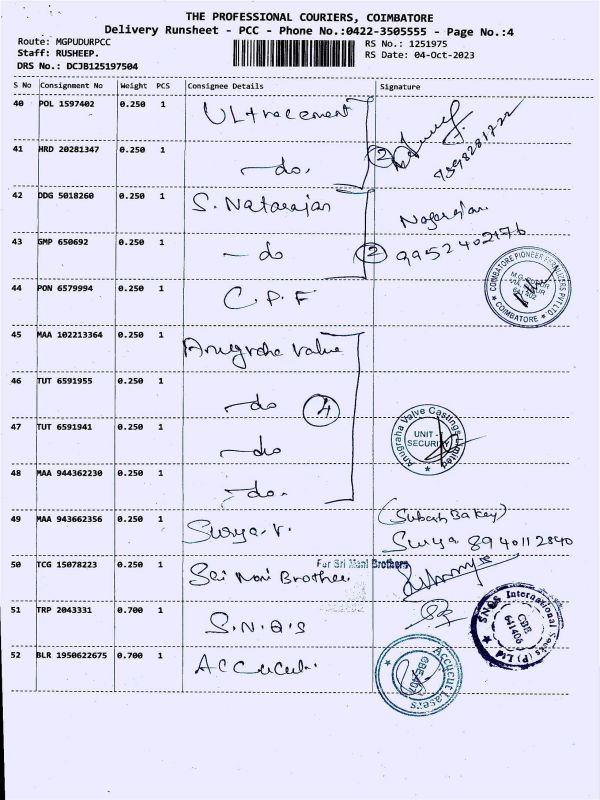 THE PROFESSIONAL COURIERS, COIMBATORE
Delivery Runsheet - PCC - Phone No.:0422-3505555 - Page No.:4
Route: MGPUDURPCC
Staff: RUSHEEP.
DRS No.: DCJB125197504
RS No.: 1251975
RS Date: 04-Oct-2023
S No Consignment No Weight PCS Consignee Details Signature
40 POL 1597402 0.250 1 Ultracement
9398281722
41 HRD 20281347 0.250 1 -do. 2
42 DDG 5018260 0.250 1 S. Natarajan Nagarajan
9952402176
43 GMP 650692 0.250 1 -do 2
COIMBATORE PIONEER FERTILIZERS PVT LTD
COIMBATORE
641 402
44 PON 6579994 0.250 1 C.P.F
45 MAA 102213364 0.250 1 Anugraha Valve
46 TUT 6591955 0.250 1 -do 4
47 TUT 6591941 0.250 1 -do
Anugraha Valve Castings Limited
UNIT -
SECURITY
48 MAA 944362230 0.250 1 -do.
49 MAA 943662356 0.250 1 Surya.V. (Subash Bakey)
Surya 8940112840
50 TCG 15078223 0.250 1 Sri Mani Brother
For Sri Mani Brothers
51 TRP 2043331 0.700 1 S.N.Q's
SNQS International Socks (P) Ltd
CBE
641406
52 BLR 1950622675 0.700 1 Accucut.
Accucut Lasers